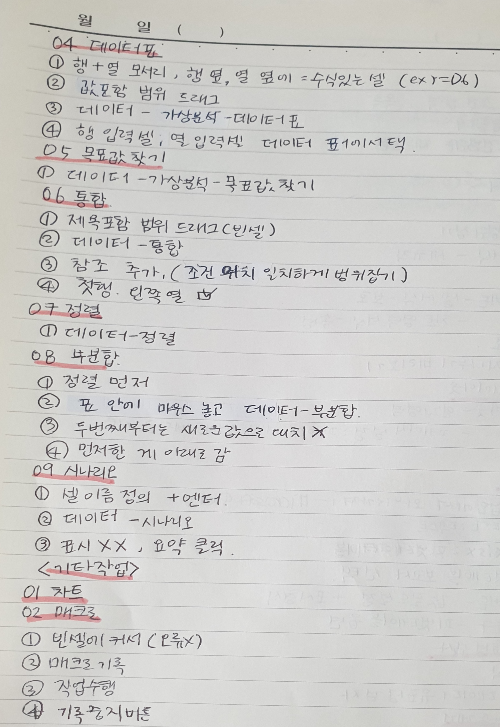 월 일 ( )
04 데이터표
① 행+열 모서리, 행 옆, 열 옆에 = 수식있는 셀 (ex)=D6)
② 값포함 범위 드래그
③ 데이터 - 가상분석 - 데이터표
④ 행 입력셀, 열 입력셀 데이터 표에서 택.
05 목표값 찾기
① 데이터-가상분석-목표값 찾기
06 통합
① 제목포함 범위 드래그(빈셀)
② 데이터-통합
③ 참조 추가, (조건 위치 일치하게 범위잡기)
④ 첫행. 왼쪽열 ☑
07 정렬
① 데이터-정렬
08 부분합.
① 정렬 먼저
② 표 안에 마우스 놓고 데이터-부분합.
③ 두번째부터는 새로운값으로 대치 X
④ 먼저한 게 아래로 감
09 시나리오
① 셀 이름 정의 + 엔터.
② 데이터 - 시나리오
③ 표시 XX, 요약 클릭.
<기타작업>
01 차트
02 매크로
① 빈셀에 커서 (오류X)
② 매크로 기록
③ 작업수행
④ 기록중지버튼